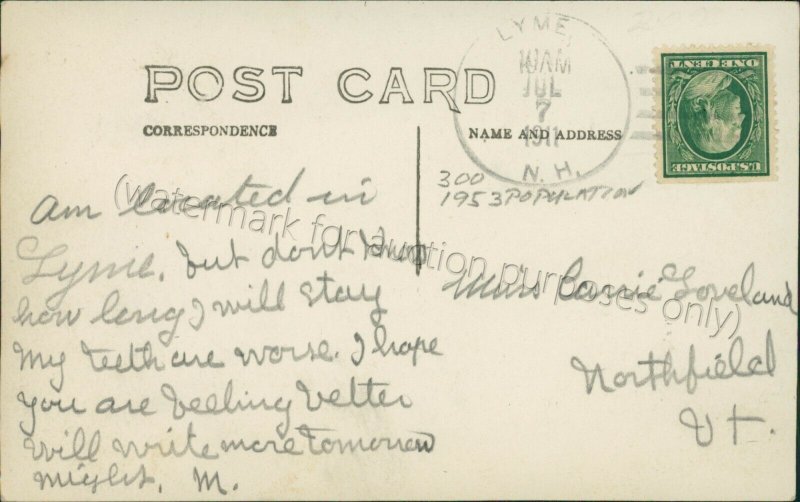 POST CARD
CORRESPONDENCE
NAME AND ADDRESS
LYME,
10 AM
JUL
7
1911
N. H.
ONE CENT
U.S. POSTAGE
300
1953 POPULATION
(watermark for auction purposes only)
am located in
Lyme. but dont know
how long I will stay
My teeth are worse. I hope
you are feeling better
Will write more tomorrow
night. M.
Miss Carrie Loveland
Northfield
Vt.